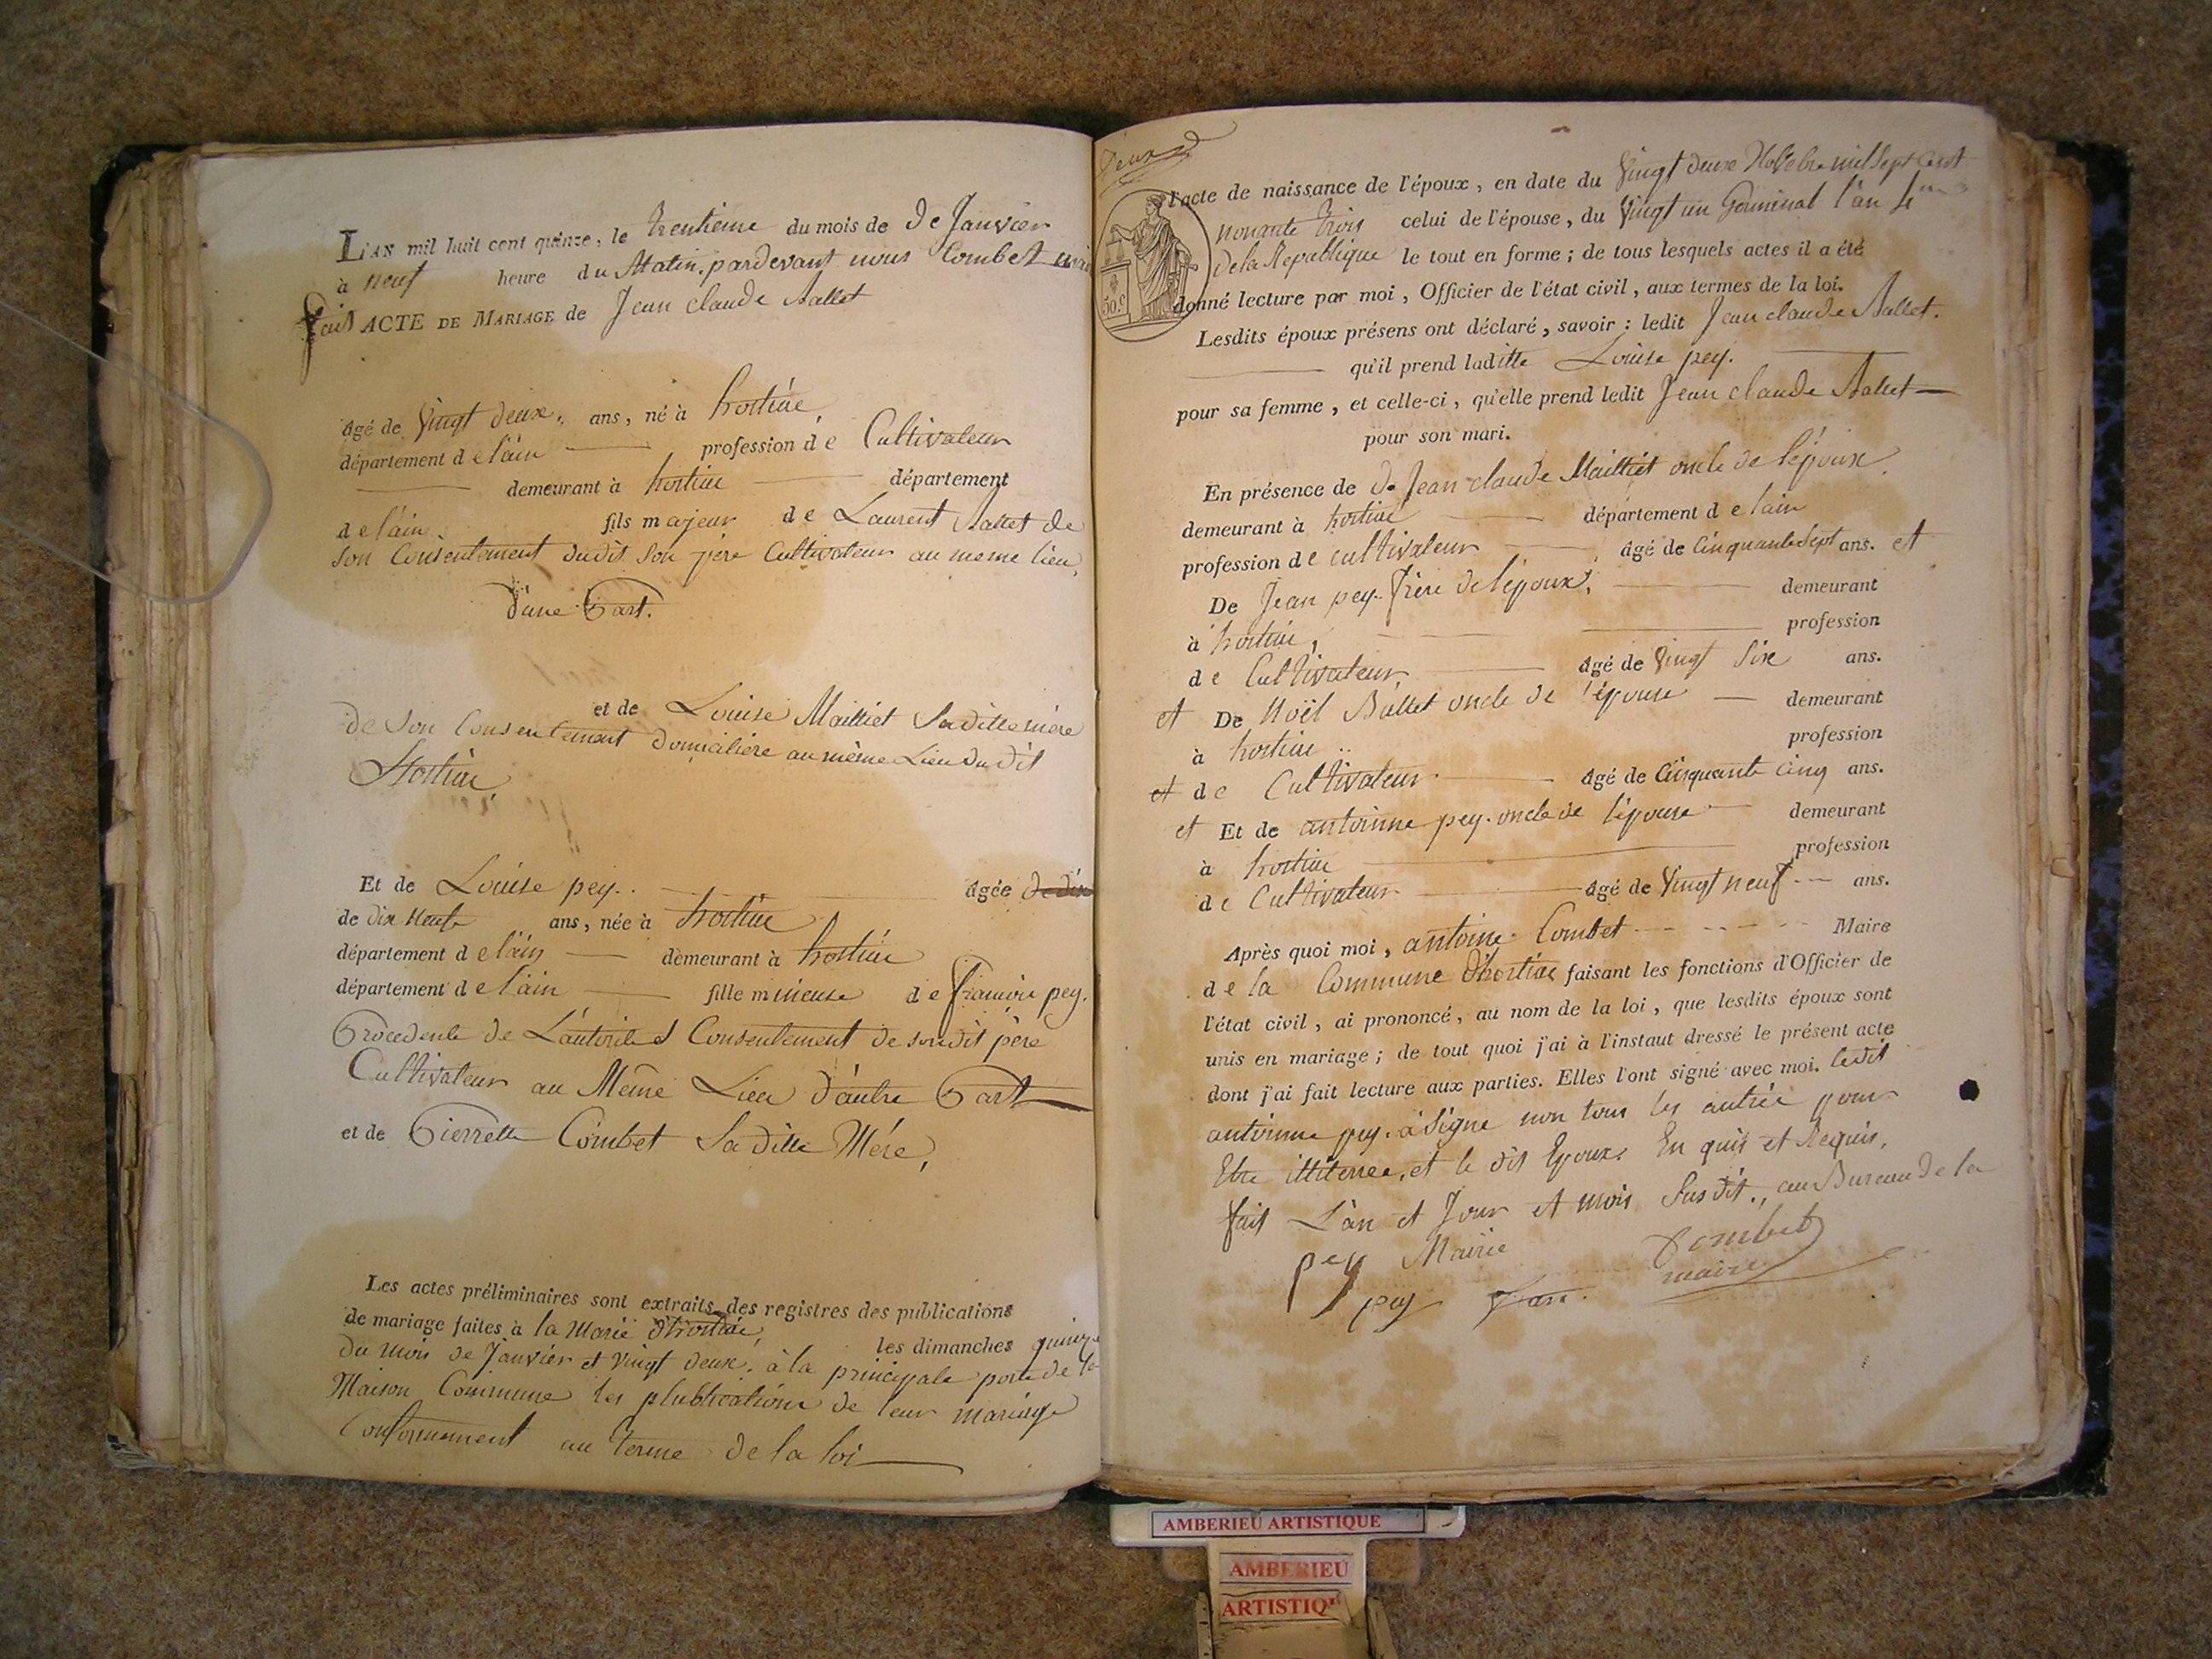 L'AN mil huit cent quinze, le trentieme du mois de de Janvier
à neuf heure du Matin, pardevant nous Combet
fait ACTE DE MARIAGE de Jean claude Ballet
âgé de vingt deux, ans, né à hostiae,
département de l'ain profession de Cultivateur
demeurant à hostiae département
de l'ain. fils majeur de Laurent Ballet de
son Consentement dudit son père Cultivateur au meme lieu,
d'une Part.
et de Louise Mailliet Sa ditte mère
de son Consentement domiciliere au même Lieu du dit
hostiae,
Et de Louise pey. âgée de dix
de dix neufs ans, née à hostiae
département de l'ain demeurant à hostiae
département de l'ain fille mineuse de francoie pey.
Procedente de L'autorite et Consentement de son dit père
Cultivateur au Même Lieu d'autre Part
et de Pierrette Combet Sa ditte Mére,
Les actes préliminaires sont extraits des registres des publications
de mariage faites à la Marie d'hostiae, les dimanches quinze
du mois de Janvier et vingt deux, à la principale porte de la
Maison Commune les plublications de leur mariage
Conformement au terme de la loi
Deux
50.c
l'acte de naissance de l'époux, en date du vingt deux Novebre mil Sept Cent
nonante trois celui de l'épouse, du vingt un Germinal l'an 4me
de la Republique le tout en forme; de tous lesquels actes il a été
donné lecture par moi, Officier de l'état civil, aux termes de la loi.
Lesdits époux présens ont déclaré, savoir: ledit Jean claude Ballet.
qu'il prend laditte Louise pey.
pour sa femme, et celle-ci, qu'elle prend ledit Jean claude Ballet
pour son mari.
En présence de d. Jean claude Mailliet oncle de l'époux.
demeurant à hostiae département de l'ain
profession de cultivateur âgé de Cinquante Sept ans. et
De Jean pey. frère de l'époux, demeurant
à hostiae, profession
de Cultivateur, âgé de vingt Six ans.
et De Noël Ballet oncle de l'épouse demeurant
à hostiae profession
et de Cultivateur. âgé de Cinquante Cinq ans.
et Et de antoinne pey. oncle de l'épouse demeurant
à hostiae profession
de Cultivateur âgé de vingt neuf ans.
Après quoi moi, antoine Combet Maire
de la Commune d'hostiae faisant les fonctions d'Officier de
l'état civil, ai prononcé, au nom de la loi, que lesdits époux sont
unis en mariage; de tout quoi j'ai à l'instaut dressé le présent acte
dont j'ai fait lecture aux parties. Elles l'ont signé avec moi. ledit
antoinne pey. à Signe non tous les autrée pour
Etre illiteree, et le dit Epouxs En quis et Requis,
fait L'an et Jour et mois Sus dit., au Bureau de la
pey Mairie Combet
maire
pey Jan.
AMBERIEU ARTISTIQUE
AMBERIEU
ARTISTIQ